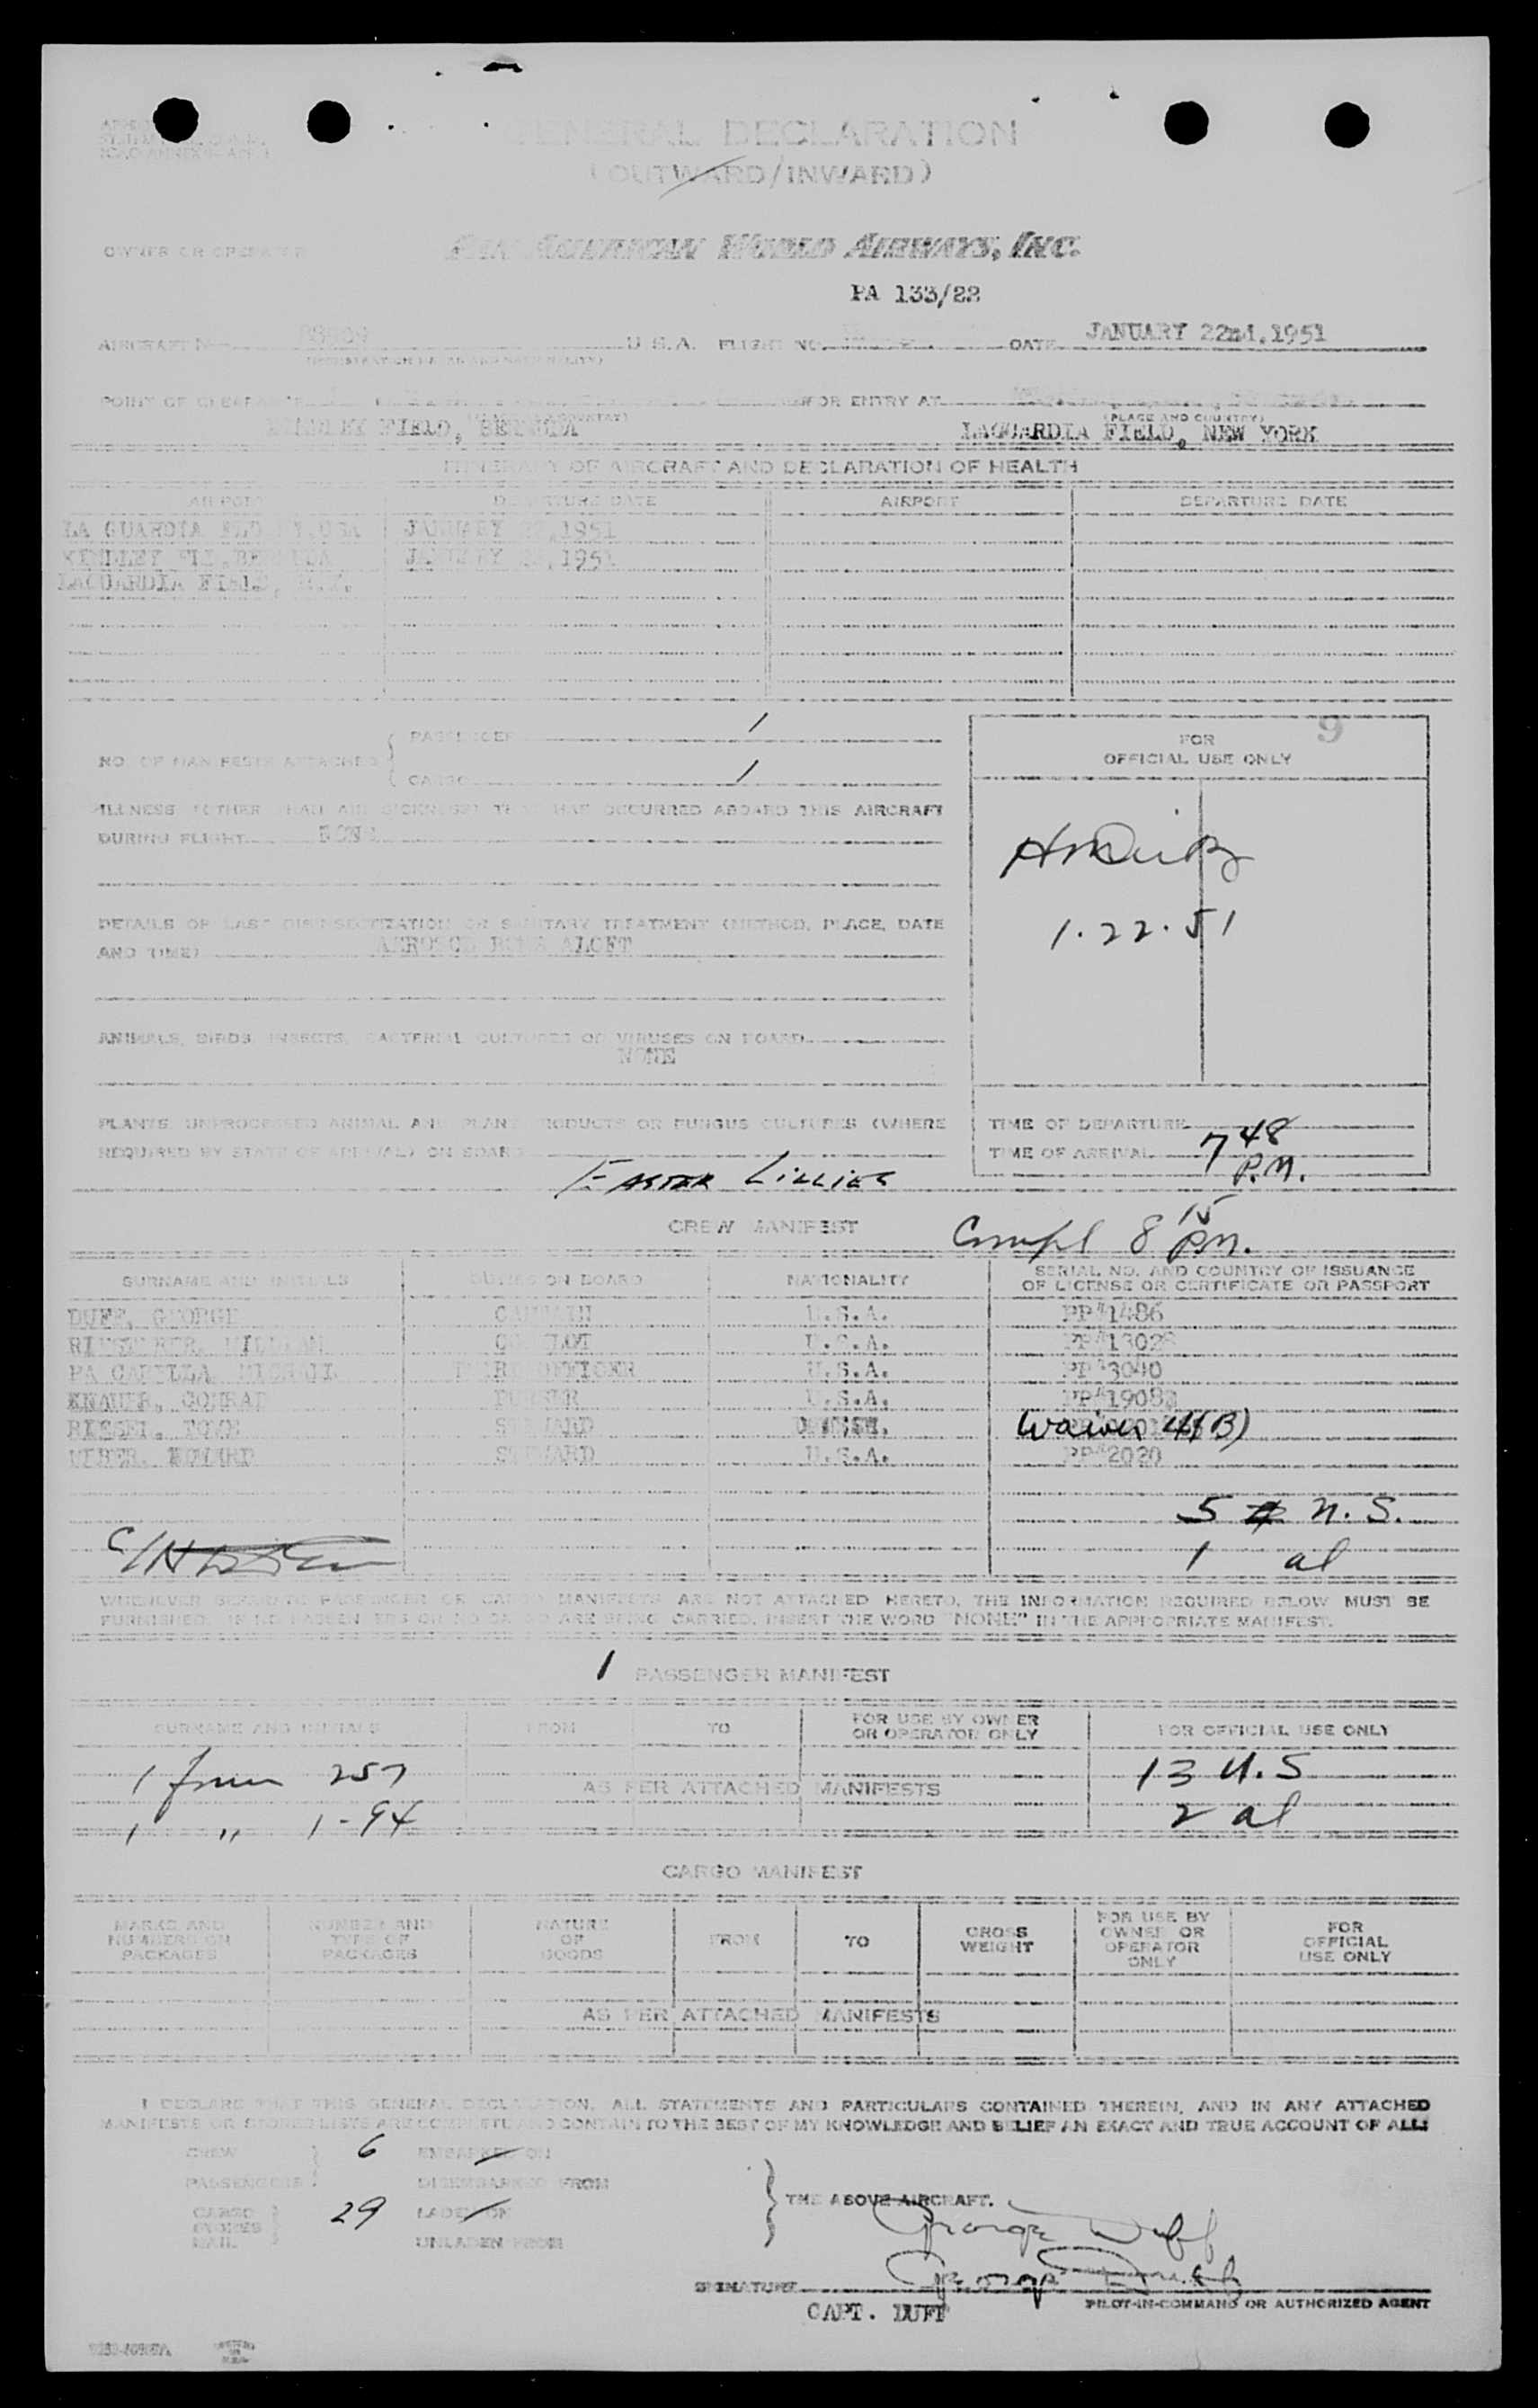 GENERAL DECLARATION
(OUTWARD/INWARD)
OWNER OR OPERATOR PAN AMERICAN WORLD AIRWAYS, INC.
PA 133/22
AIRCRAFT No. U.S.A. FLIGHT NO. DATE JANUARY 22nd, 1951
POINT OF CLEARANCE FOR ENTRY AT
(PLACE AND COUNTRY)
KINDLEY FIELD, BERMUDA LAGUARDIA FIELD, NEW YORK
ITINERARY OF AIRCRAFT AND DECLARATION OF HEALTH
AIRPORT DEPARTURE DATE AIRPORT DEPARTURE DATE
LA GUARDIA FLD JANUARY 22,1951
KINDLEY FLD,BERMUDA JANUARY 22,1951
LAGUARDIA FIELD, N.Y.
9
PASSENGER 1
NO. OF MANIFESTS ATTACHED
CARGO 1
FOR
OFFICIAL USE ONLY
ILLNESS (OTHER THAN AIR SICKNESS) THAT HAS OCCURRED ABOARD THIS AIRCRAFT
DURING FLIGHT NONE
1.22.51
DETAILS OF LAST DISINSECTIZATION OR SANITARY TREATMENT (METHOD, PLACE, DATE
AND TIME) AEROSOL BOMB ALOFT
ANIMALS, BIRDS, INSECTS, BACTERIAL CULTURES OR VIRUSES ON BOARD
NONE
PLANTS, UNPROCESSED ANIMAL AND PLANT PRODUCTS OR FUNGUS CULTURES (WHERE
REQUIRED BY STATE OF ARRIVAL) ON BOARD
EASTER LILLIES
TIME OF DEPARTURE
TIME OF ARRIVAL 7 48 P.M.
CREW MANIFEST Compl 8 15 P.M.
SURNAME AND INITIALS DUTIES ON BOARD NATIONALITY SERIAL NO. AND COUNTRY OF ISSUANCE
OF LICENSE OR CERTIFICATE OR PASSPORT
DUFF, GEORGE CAPTAIN U.S.A. PP#1486
WILLIAM CO PILOT U.S.A. PP#13028
PA CAPELLA, THIRD OFFICER U.S.A. PP#3040
KNAUER, CONRAD PURSER U.S.A.
STEWARD Waiver 4(B)
WEBER, STEWARD U.S.A. PP#2020
5 N.S.
1 al
WHENEVER SEPARATE PASSENGER OR CARGO MANIFESTS ARE NOT ATTACHED HERETO, THE INFORMATION REQUIRED BELOW MUST BE
FURNISHED. IF NO PASSENGERS OR NO CARGO ARE BEING CARRIED, INSERT THE WORD "NONE" IN THE APPROPRIATE MANIFEST.
1 PASSENGER MANIFEST
SURNAME AND INITIALS FROM TO FOR USE BY OWNER
OR OPERATOR ONLY FOR OFFICIAL USE ONLY
1 from 257 13 U.S
AS PER ATTACHED MANIFESTS
1 " 1-94 2 al
CARGO MANIFEST
MARKS AND
NUMBERS ON
PACKAGES
NUMBER AND
TYPE OF
PACKAGES
NATURE
OF
GOODS
FROM
TO
GROSS
WEIGHT
FOR USE BY
OWNER OR
OPERATOR
ONLY
FOR
OFFICIAL
USE ONLY
AS PER ATTACHED MANIFESTS
I DECLARE THAT THIS GENERAL DECLARATION, ALL STATEMENTS AND PARTICULARS CONTAINED THEREIN, AND IN ANY ATTACHED
MANIFESTS OR STORES LISTS ARE COMPLETE AND CONTAIN TO THE BEST OF MY KNOWLEDGE AND BELIEF AN EXACT AND TRUE ACCOUNT OF ALL:
CREW 6 EMBARKED ON
PASSENGERS DISEMBARKED FROM
THE ABOVE AIRCRAFT.
CARGO 29 LADEN ON
STORES
MAIL UNLADEN FROM
George Duff
SIGNATURE George Duff
PILOT-IN-COMMAND OR AUTHORIZED AGENT
CAPT. DUFF